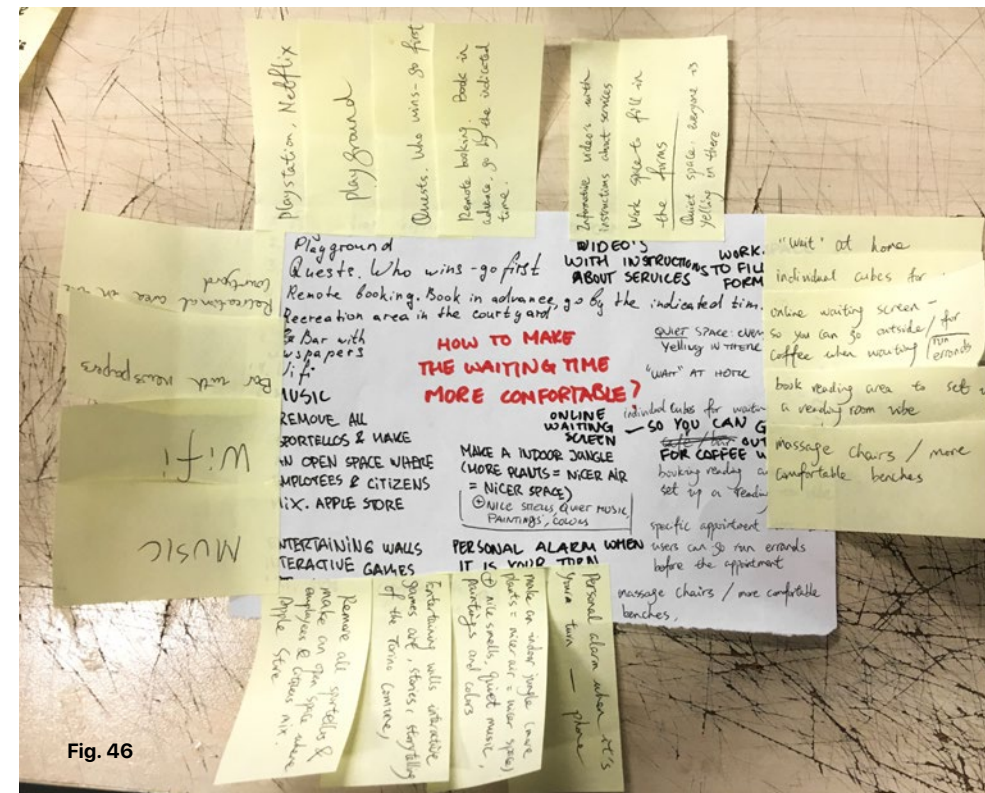 Playstation, Netflix
playground
Quests. Who wins - go first
Remote booking. Book in
advance, go by the indicated
time.
Informative video's with
instructions about services
Work space to fill in
the forms
Quiet space. everyone is
yelling in there
Recreational area in the
courtyard
Bar with newspapers
Wifi
MUSIC
Playground
Quests. Who wins - go first
Remote booking. Book in advance, go by the indicated tim.
Recreation area in the courtyard
& Bar with
wspapers
ifi
USIC
REMOVE ALL
SPORTELLOS & MAKE
AN OPEN SPACE WHERE
MPLOYEES & CITIZENS
MIX. APPLE STORE
NTERTAINING WALLS
TERACTIVE GAMES
VIDEO'S
WITH INSTRUCTIONS
ABOUT SERVICES
WORK.
TO FILL
FORM
QUIET SPACE: EVER
Yelling IN THERE
"WAIT" AT HOME
HOW TO MAKE
THE WAITING TIME
MORE COMFORTABLE?
ONLINE
WAITING
SCREEN
individual cubes for waitin
- SO YOU CAN G
cafe / bar OUT
FOR COFFEE W
MAKE A INDOOR JUNGLE
(MORE PLANTS = NICER AIR
= NICER SPACE)
+ NICE SMELLS, QUIET MUSIC,
PAINTINGS, COLORS
booking reading a
set up a readin
specific appointment
users can go run errands
before the appointment
PERSONAL ALARM WHEN
IT IS YOUR TURN
massage chairs / more comfortable
benches,
"Wait" at home
individual cubes for
online waiting screen -
so you can go outside / for
coffee when waiting / run
errands
book reading area to set u
a reading room vibe
massage chairs / more
comfortable benches
Remove all sportellos &
make an open space where
employees & citizens mix.
Apple Store
Entertaining walls interactive
games art, stories, storytelling
of the Torino Comune,
make an indoor jungle (more
plants = nicer air = nicer space)
+ nice smells, quiet music,
paintings and colors
Personal alarm when it's
your turn — phone
Fig. 46